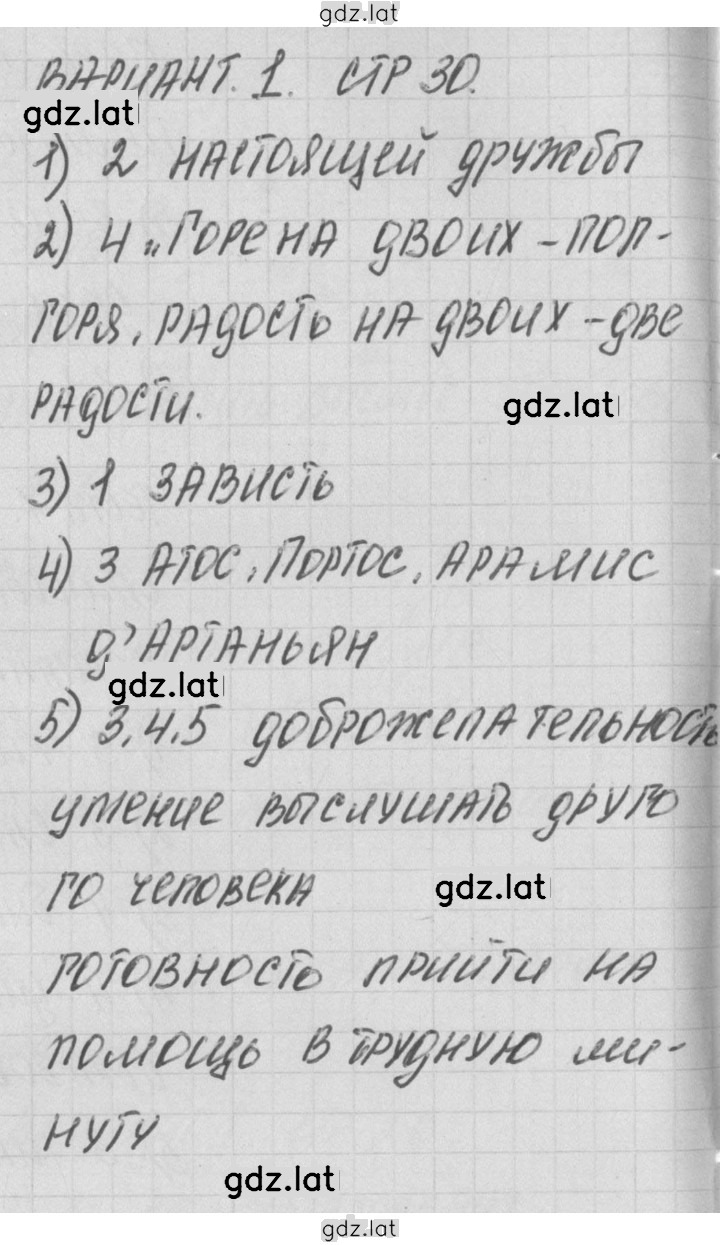 gdz.lat
ВАРИАНТ. 1. СТР 30.
gdz.lat
1) 2 НАСТОЯЩЕЙ ДРУЖБЫ
2) 4 „ГОРЕ НА ДВОИХ - ПОЛ-
ГОРЯ, РАДОСТЬ НА ДВОИХ - ДВЕ
РАДОСТИ.
gdz.lat
3) 1 ЗАВИСТЬ
4) 3 АТОС, ПОРТОС, АРАМИС
Д'АРТАНЬЯН
gdz.lat
5) 3,4,5 ДОБРОЖЕЛАТЕЛЬНОСТЬ
УМЕНИЕ ВЫСЛУШАТЬ ДРУГО
ГО ЧЕЛОВЕКА
gdz.lat
ГОТОВНОСТЬ ПРИЙТИ НА
ПОМОЩЬ В ТРУДНУЮ МИ-
НУТУ
gdz.lat
gdz.lat